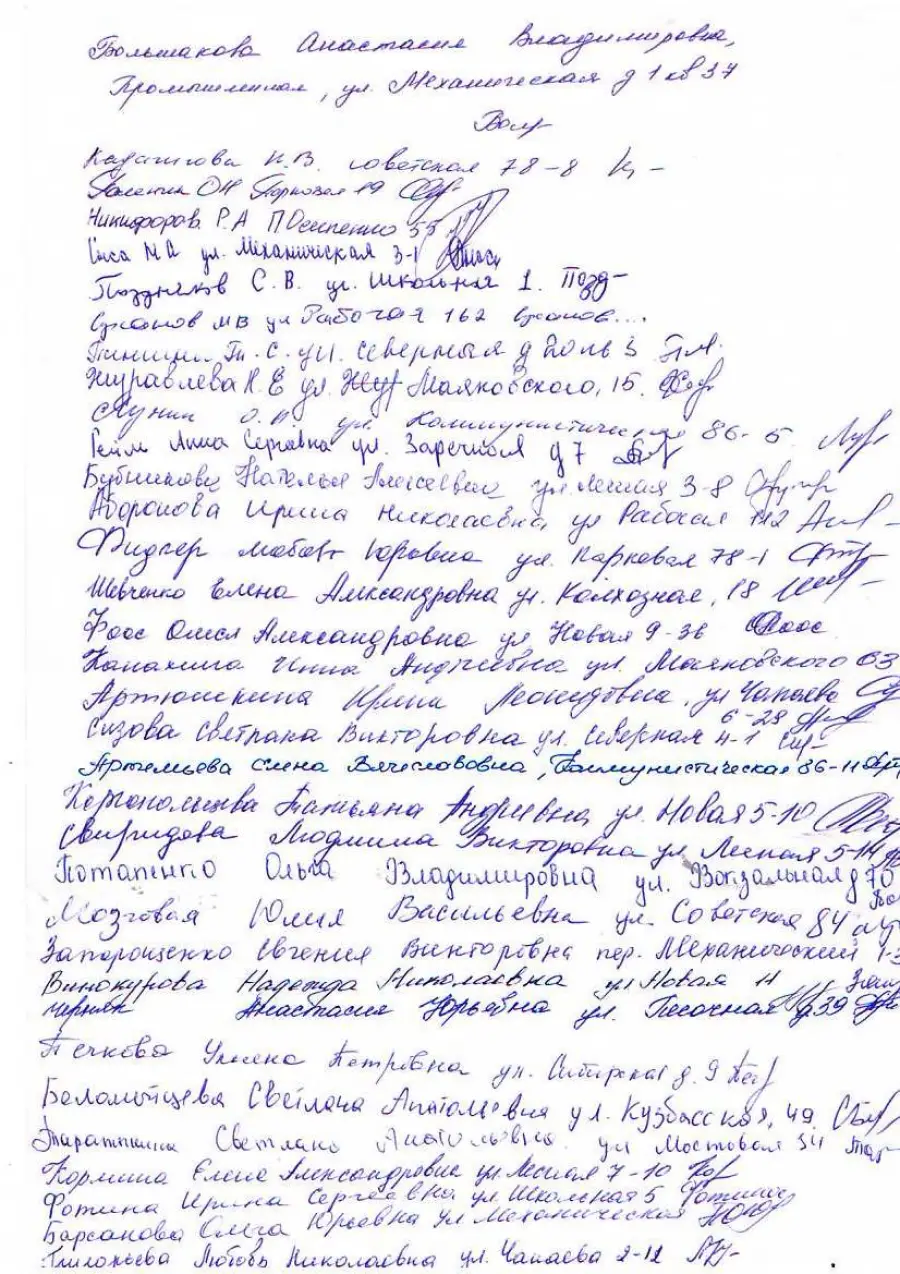 Большакова Анастасия Владимировна,
Промышленная, ул. Механическая д 1 кв 37
Н.В. Советская 78-8
ОН Парковая 19
Никифоров Р.А П Осипенко 55
МА ул. Механическая 3-1
Поздняков С.В. ул. Школьная 1. Позд-
МВ ул Рабочая 162
С. ул. Северная д
Журавлева Н.Е ул. Маяковского, 15.
Лунин О.П. ул. Коммунистическая 86-5.
Гейм Анна Сергеевна ул. Заречная д 7
Бубникова Наталья Алексеевна ул. Лесная 3-8
Ирина Николаевна, ул Рабочая 112
Фидлер Любовь Юровна ул. Парковая 78-1
Шевченко Елена Александровна ул. Колхозная, 18
Фоос Олеся Александровна ул Новая 9-36 Фоос
Инна Андреевна ул. Маяковского 63
Артюшкина Ирина Леонидовна, ул Чапаева
6-28
Сизова Светлана Викторовна ул. Северная 4-1
Артемьева Елена Вячеславовна, Коммунистическая 86-11
Каргопольцева Татьяна Андреевна ул. Новая 5-10
Свиридова Людмила Викторовна ул Лесная 5-14
Потапенко Ольга Владимировна ул. Вокзальная д 70
Мозговая Юлия Васильевна ул. Советская 84
Запорощенко Евгения Викторовна пер. Механический
Винокурова Надежда Николаевна ул Новая 11
Черняк Анастасия Юрьевна ул. Песочная д 39
Печкова Ульяна Петровна ул. Сибирская д. 9
Беломытцева Светлана Анатольевна ул. Кузбасская, 49.
Светлана Анатольевна ул Мостовая 34
Кормина Елена Александровна ул. Лесная 7-10 Кор
Фотина Ирина Сергеевна ул. Школьная 5 Фотина
Барсанова Ольга Юрьевна ул Механическая
Любовь Николаевна ул. Чапаева 2-12